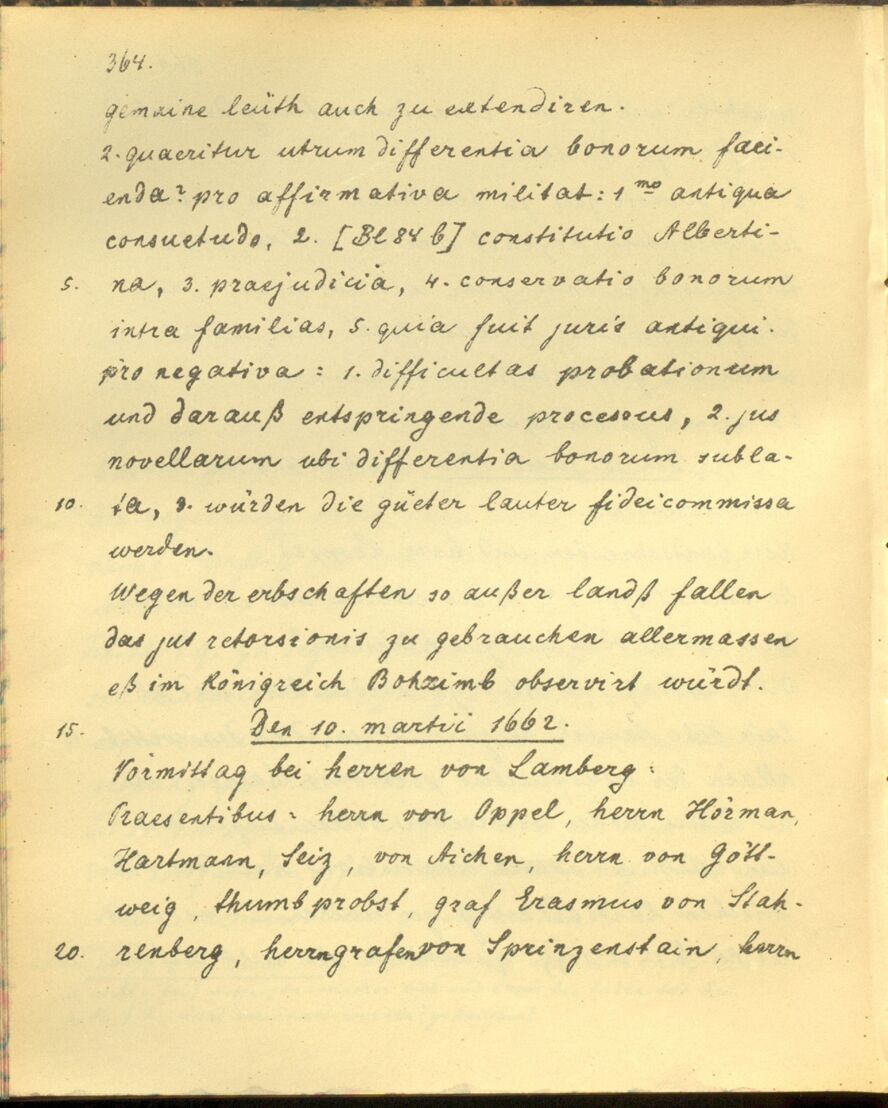 364.
gemaine leüth auch zu extendiren.
2. quaeritur utrum differentia bonorum faci-
enda? pro affirmativa militat: 1mo antiqua
consuetudo, 2. [Bl 84 b] constitutio Alberti-
5. na, 3. praejudicia, 4. conservatio bonorum
intra familias, 5. quia fuit juris antiqui.
pro negativa: 1. difficultas probationum
und darauß entspringende processus, 2. jus
novellarum ubi differentia bonorum subla-
10. ta, 3. würden die güeter lauter fideicommissa
werden.
Wegen der erbschaften so außer landß fallen
das jus retorsionis zu gebrauchen allermassen
eß im Königreich Bohaimb observirt würdt.
15. Den 10. martii 1662.
Vormittag bei herren von Lamberg:
Praesentibus: herrn von Oppel, herrn Hörman,
Hartmann, Seiz, von Aichen, herrn von Gött-
weig, thumbprobst, graf Erasmus von Stah-
20. renberg, herrn grafen von Sprinzenstain, herrn